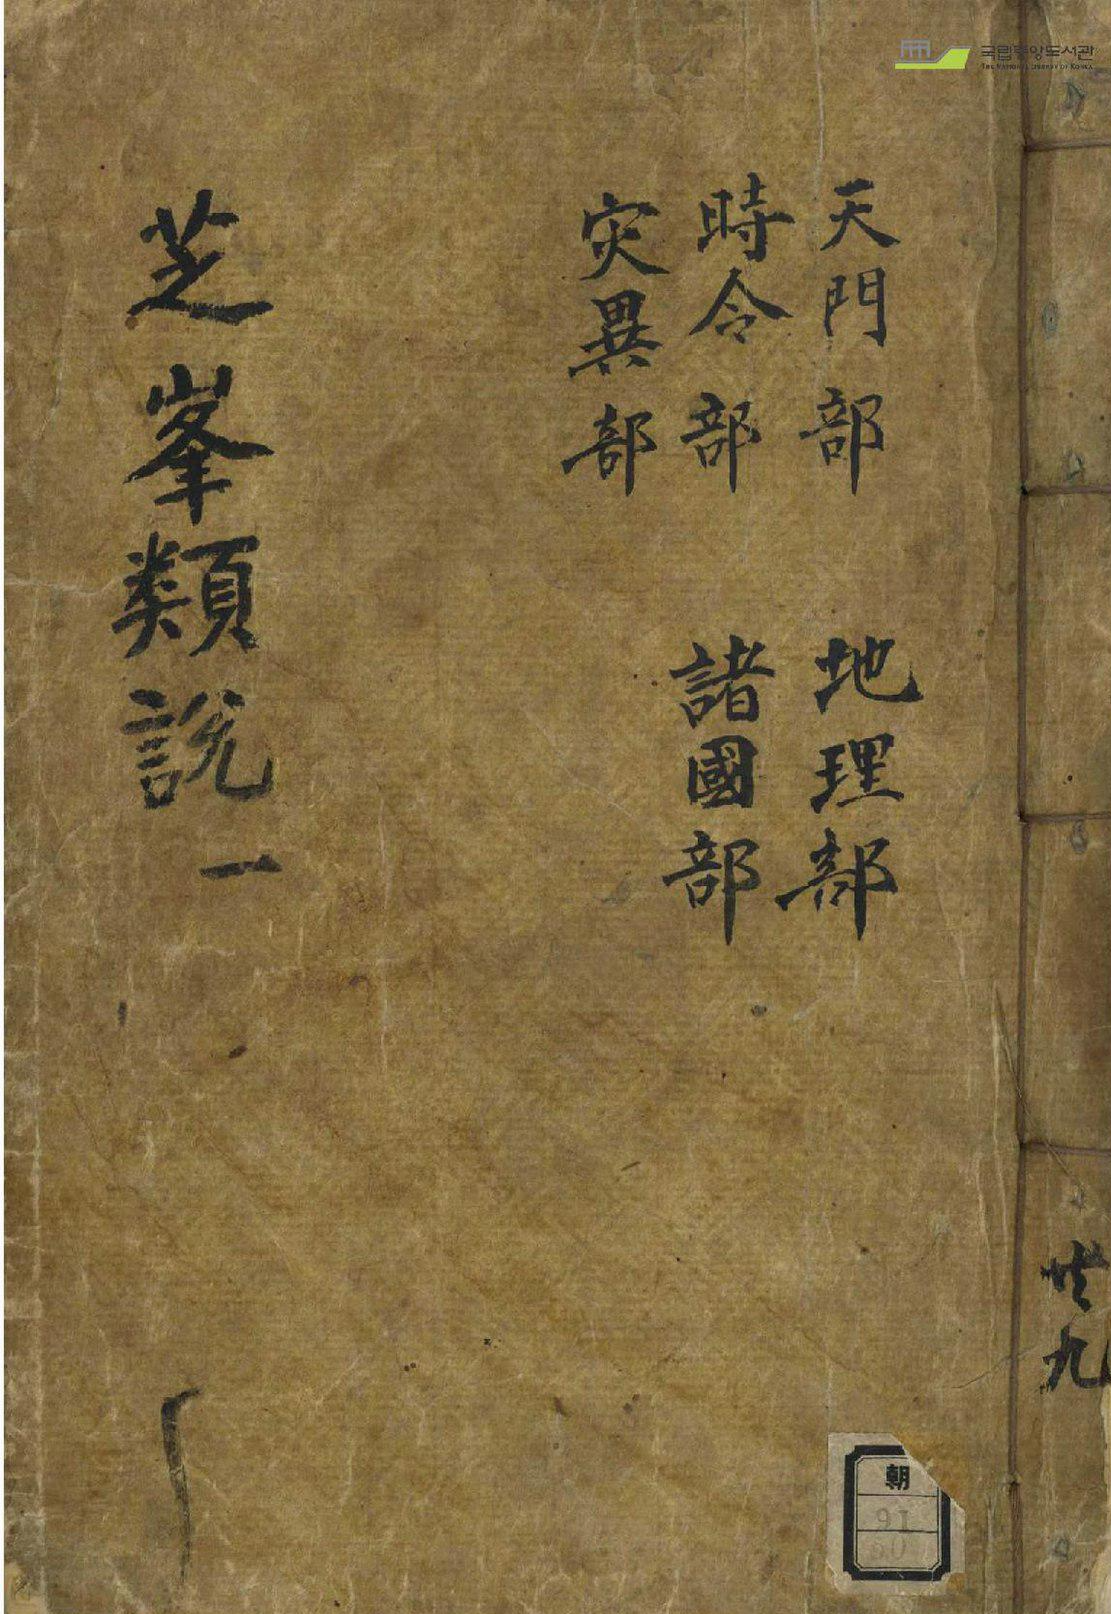 국립중앙도서관
THE NATIONAL LIBRARY OF KOREA
天門部 地理部
時令部 諸國部
災異部
芝峯類說 一
共九
朝
91
50